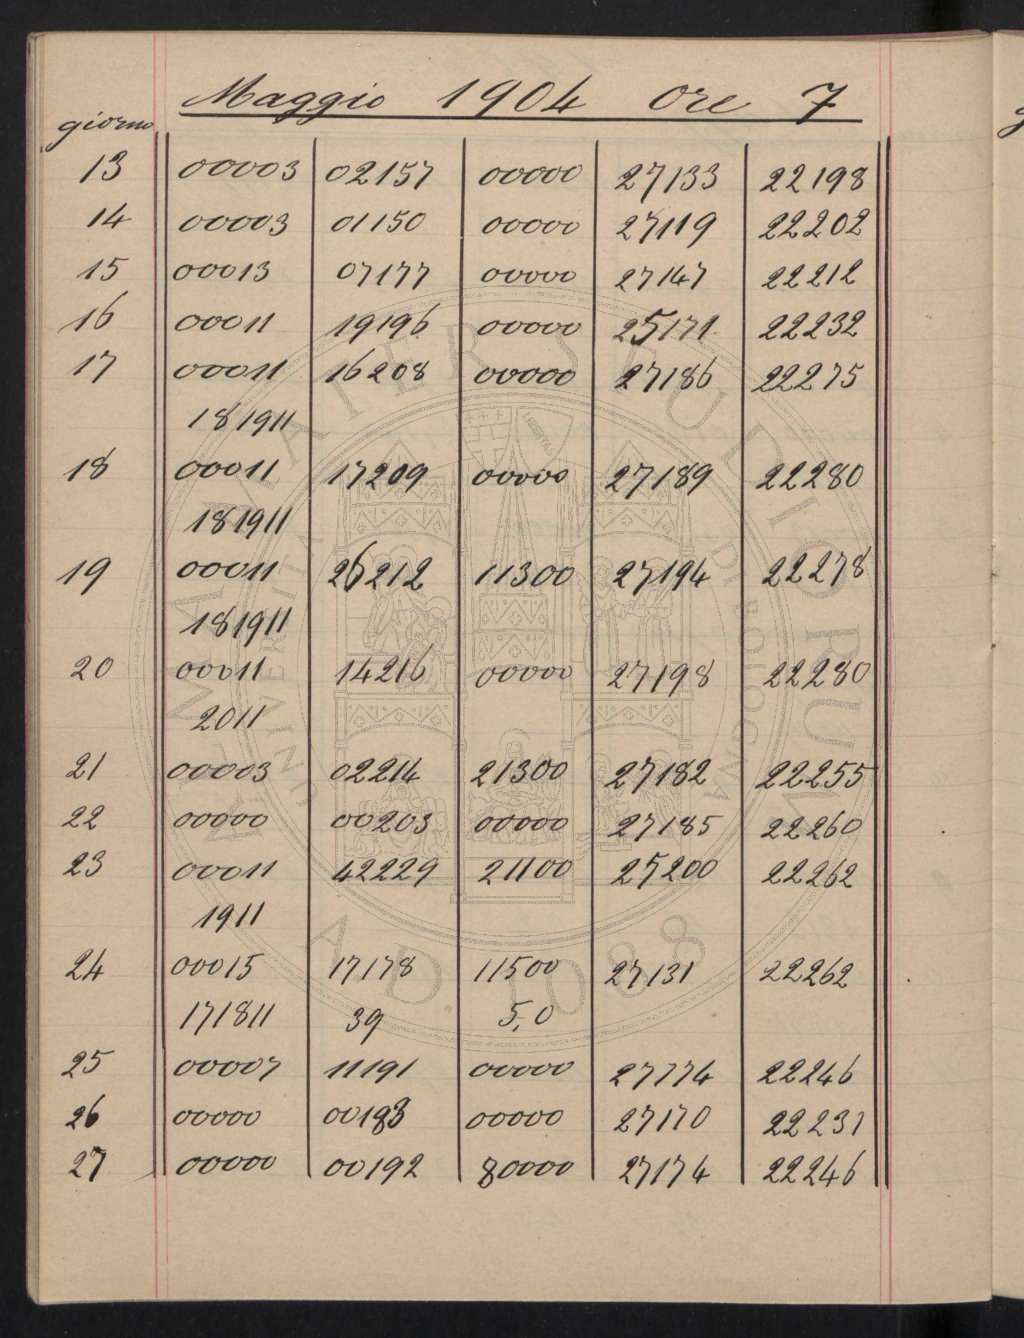 Maggio 1904 Ore 7
giorno
13 00003 02157 00000 27133 22198
14 00003 01150 00000 27119 22202
15 00013 07177 00000 27147 22212
16 00011 19196 00000 25171 22232
17 00011 16208 00000 27186 22275
181911
18 00011 17209 00000 27189 22280
181911
19 00011 26212 11300 27194 22278
181911
20 00011 14216 00000 27198 22280
2011
21 00003 02214 21300 27182 22255
22 00000 00203 00000 27185 22260
23 00011 42229 21100 25200 22262
1911
24 00015 17178 11500 27131 22262
171811 39 5,0
25 00007 11191 00000 27174 22246
26 00000 00183 00000 27170 22231
27 00000 00192 80000 27174 22246
ALMA MATER STUDIORUM
A.D. 1088